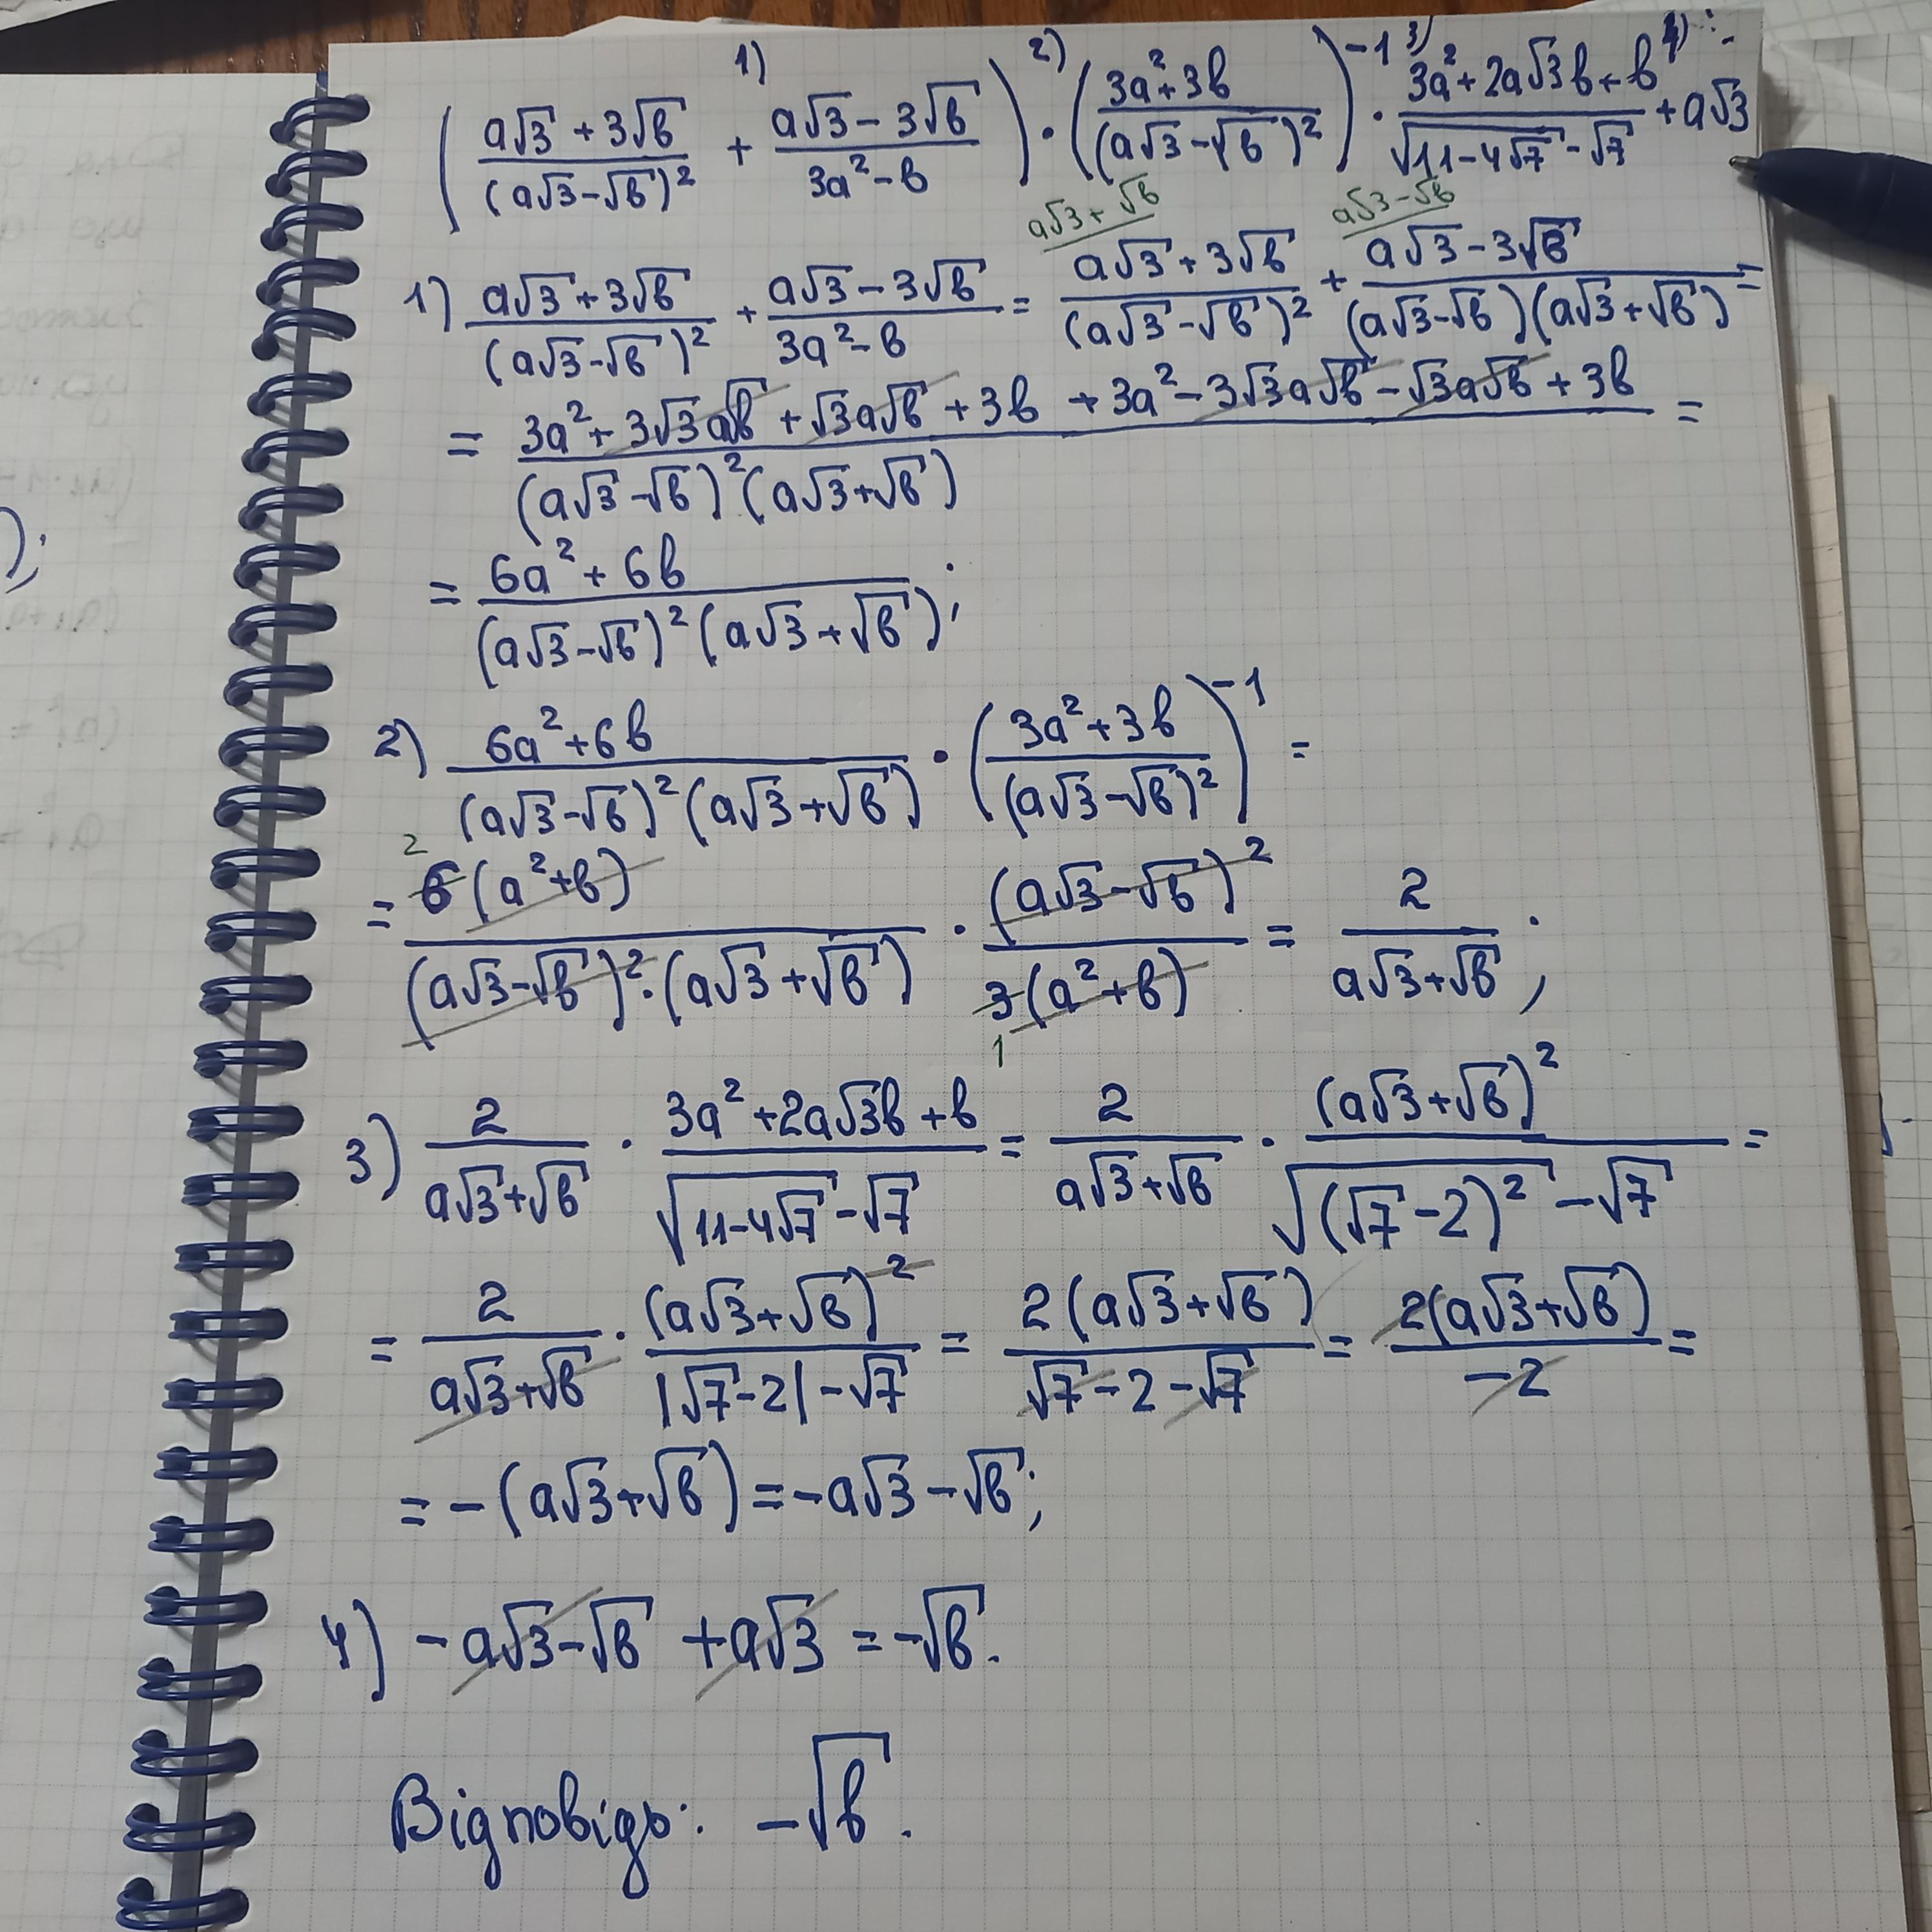 1) 2) 3) 4)
((a√3 + 3√b)/(a√3 − √b)² + (a√3 − 3√b)/(3a² − b)) · ((3a² + 3b)/(a√3 − √b)²)⁻¹ · (3a² + 2a√3b + b)/(√(11 − 4√7) − √7) + a√3
a√3 + √b a√3 − √b
1) (a√3 + 3√b)/(a√3 − √b)² + (a√3 − 3√b)/(3a² − b) = (a√3 + 3√b)/(a√3 − √b)² + (a√3 − 3√b)/((a√3 − √b)(a√3 + √b)) =
= (3a² + 3√3a√b + √3a√b + 3b + 3a² − 3√3a√b − √3a√b + 3b)/((a√3 − √b)²(a√3 + √b)) =
= (6a² + 6b)/((a√3 − √b)²(a√3 + √b));
2) (6a² + 6b)/((a√3 − √b)²(a√3 + √b)) · ((3a² + 3b)/(a√3 − √b)²)⁻¹ =
2
= 6(a² + b)/((a√3 − √b)² · (a√3 + √b)) · (a√3 − √b)²/(3(a² + b)) = 2/(a√3 + √b);
1
3) 2/(a√3 + √b) · (3a² + 2a√3b + b)/(√(11 − 4√7) − √7) = 2/(a√3 + √b) · (a√3 + √b)²/(√((√7 − 2)²) − √7) =
= 2/(a√3 + √b) · (a√3 + √b)²/(|√7 − 2| − √7) = 2(a√3 + √b)/(√7 − 2 − √7) = 2(a√3 + √b)/(−2) =
= −(a√3 + √b) = −a√3 − √b;
4) −a√3 − √b + a√3 = −√b.
Відповідь: −√b.